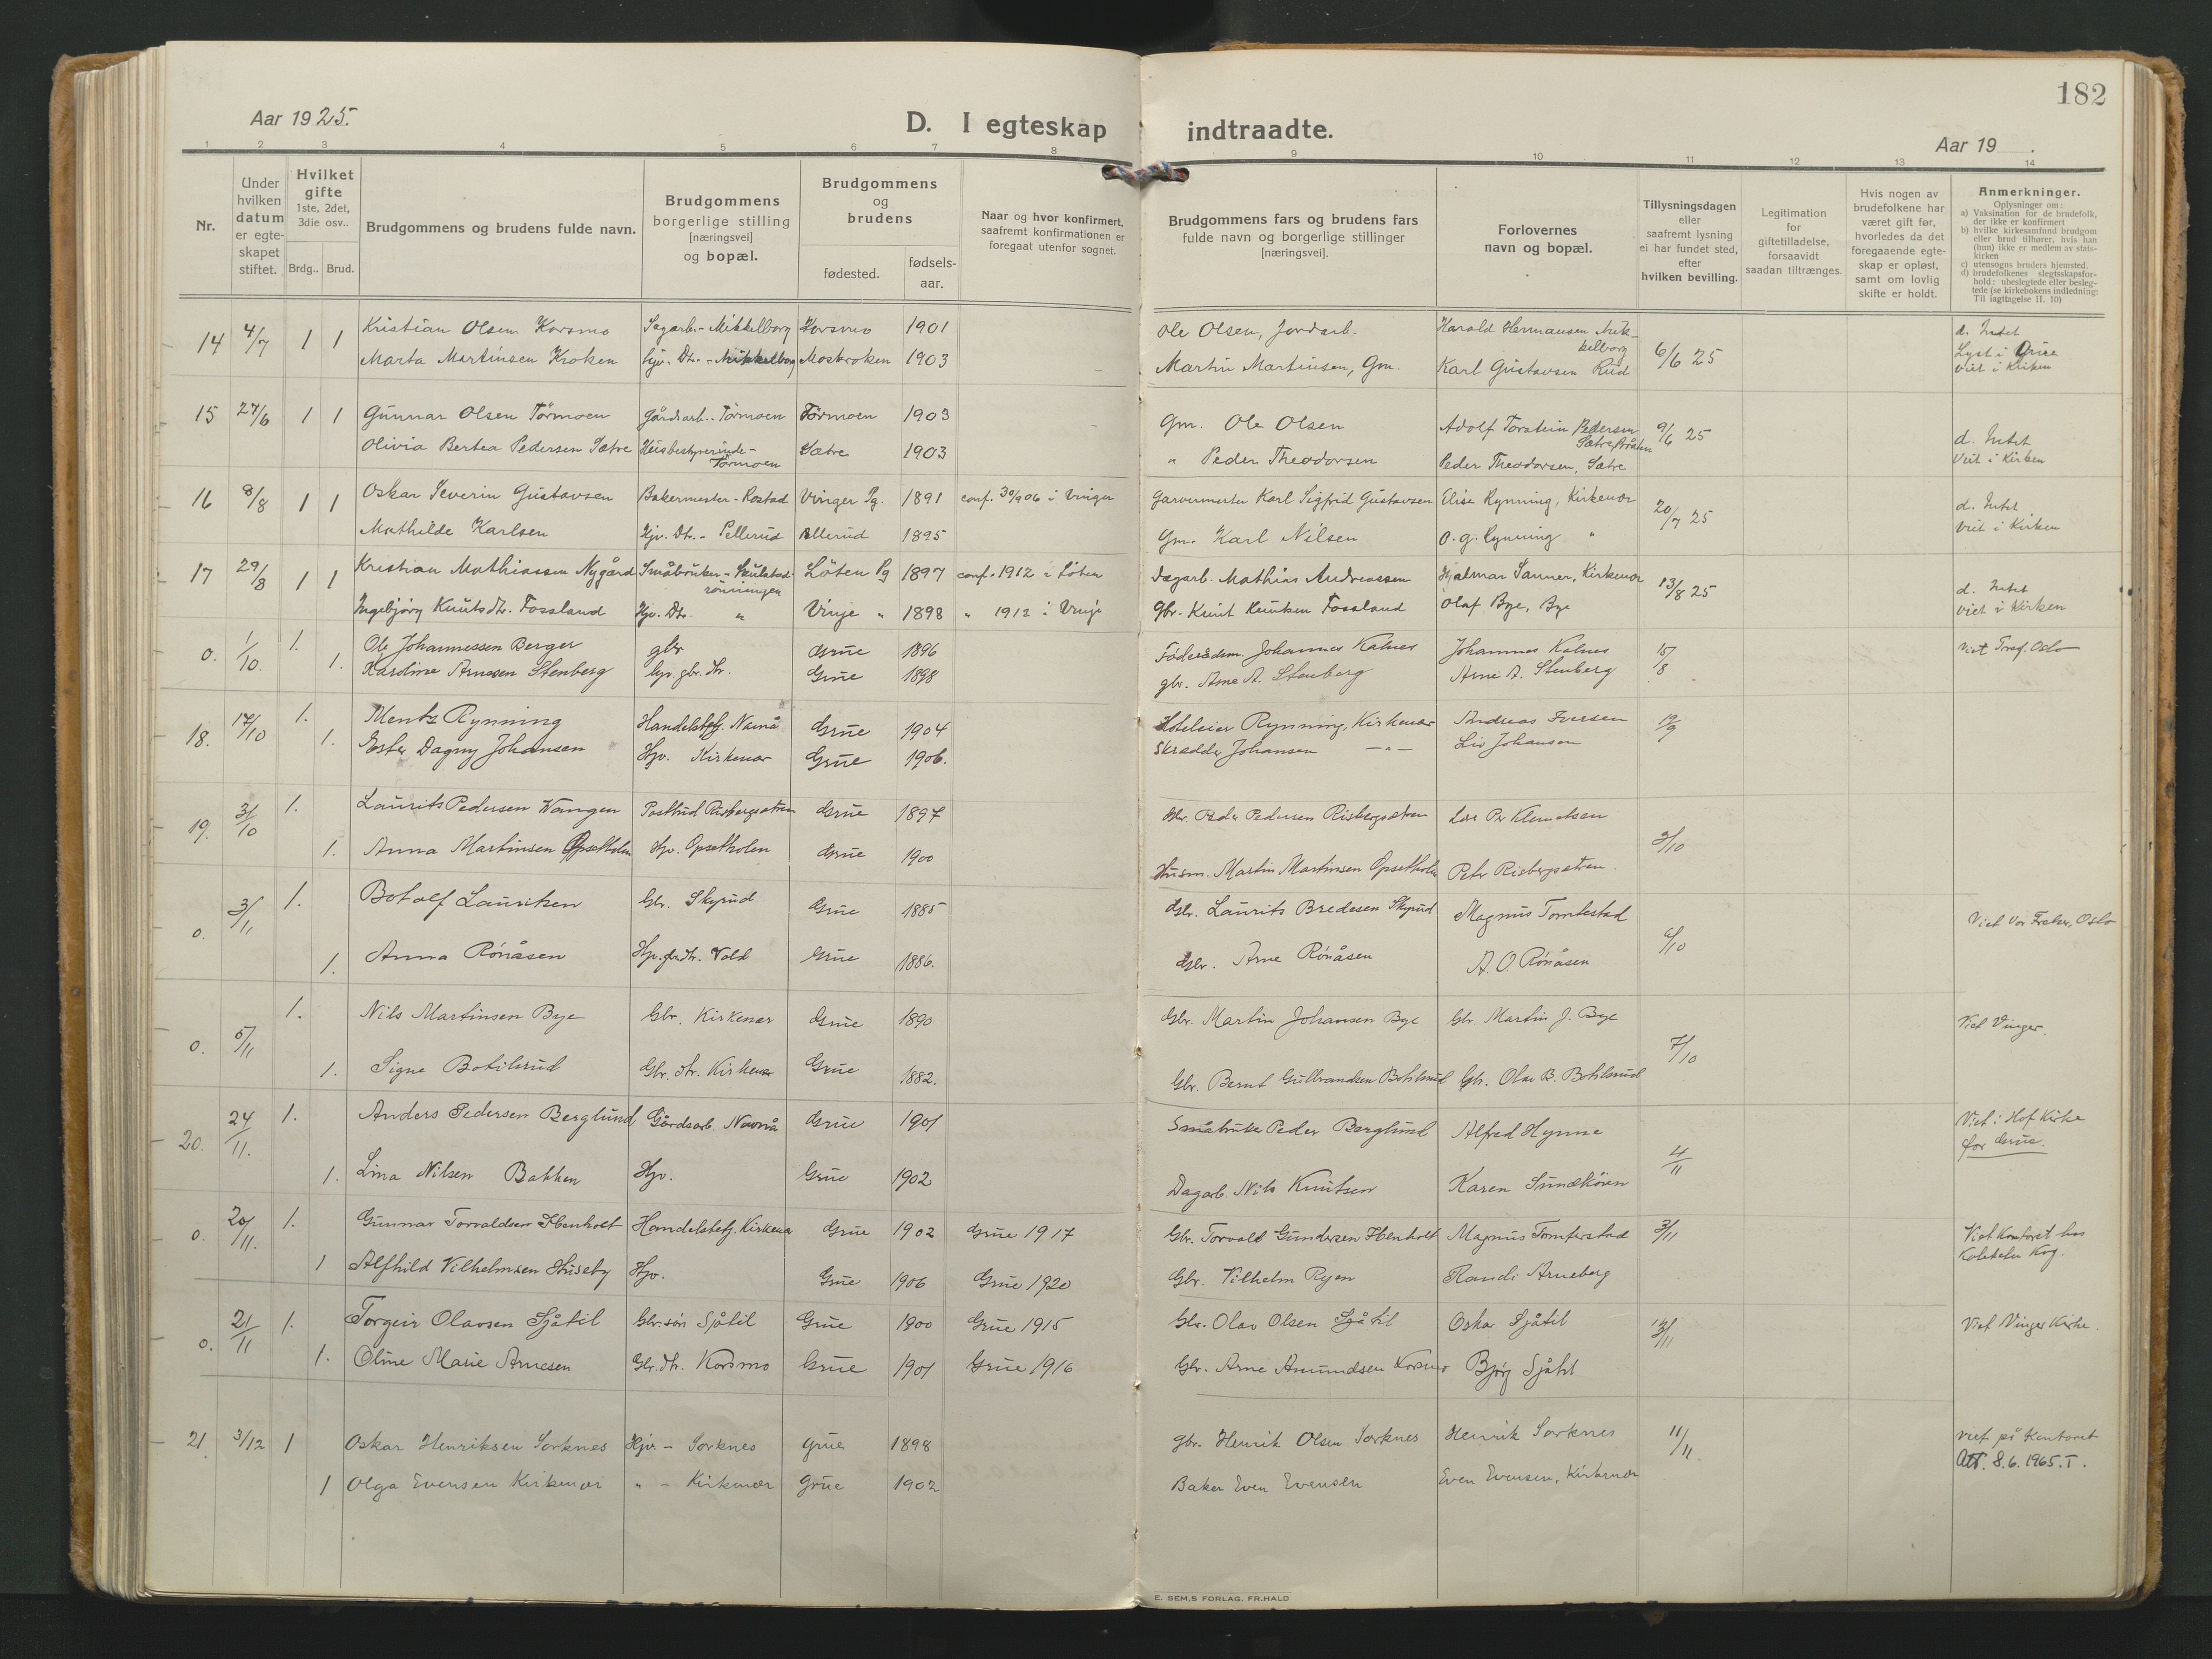 182
Aar 1925.
D. I egteskap indtraadte.
Aar 19 .
1 2 3 4 5 6 7 8 9 10 11 12 13 14
Nr.
Under hvilken datum er egteskapet stiftet.
Hvilket gifte 1ste, 2det, 3die osv..
Brdg.. Brud.
Brudgommens og brudens fulde navn.
Brudgommens borgerlige stilling [næringsvei] og bopæl.
Brudgommens og brudens
fødested.
fødsels-aar.
Naar og hvor konfirmert, saafremt konfirmationen er foregaat utenfor sognet.
Brudgommens fars og brudens fars fulde navn og borgerlige stillinger [næringsvei].
Forlovernes navn og bopæl.
Tillysningsdagen eller saafremt lysning ei har fundet sted, efter hvilken bevilling.
Legitimation for giftetilladelse, forsaavidt saadan tiltrænges.
Hvis nogen av brudefolkene har været gift før, hvorledes da det foregaaende egteskap er opløst, samt om lovlig skifte er holdt.
Anmerkninger.
Oplysninger om:
a) Vaksination for de brudefolk, der ikke er konfirmert
b) hvilke kirkesamfund brudgom eller brud tilhører, hvis han (hun) ikke er medlem av statskirken
c) utensogns bruders hjemsted.
d) brudefolkenes slegtsskapsforhold: ubeslegtede eller beslegtede (se kirkebokens indledning: Til iagttagelse II. 10)
14 4/7 1 1 Kristian Olsen Korsmo Sagarb. - Mikkelborg Korsmo 1901 Ole Olsen, Jordarb. Harald Hermansen Mikkelborg 6/6 25 d. Intet
Lyst i Grue
Marta Martinsen Kroken Hjv. Dtr. - Mikkelborg Moskroken 1903 Martin Martinsen, Gm. Karl Gustavsen Rud viet i Kirken
15 27/6 1 1 Gunnar Olsen Törmoen Gårdsarb. - Törmoen Törmoen 1903 Gm. Ole Olsen Adolf Torstein Pedersen Sætre 9/6 25 d. Intet
Olivia Bertea Pedersen Sætre Husbestyrerinde - Törmoen Sætre 1903 " Peder Theodorsen Peder Theodorsen, Sætre Viet i Kirken
16 8/8 1 1 Oskar Severin Gustavsen Bakermester - Rostad Vinger Pg. 1891 conf. 30/9 06 i Vinger Garvermester Karl Sigfrid Gustavsen Elise Rynning, Kirkenær 20/7 25 d. Intet
Mathilde Karlsen Hjv. Dtr. - Pellerud Pellerud 1895 Gm. Karl Nilsen O. G. Rynning " Viet i Kirken
17 29/8 1 1 Kristian Mathiassen Nygård Småbruker - Skulstadrönningen Löten Pg 1897 conf. 1912 i Löten Dagarb. Mathias Andreassen Hjalmar Sanner, Kirkenær 13/8 25 d. Intet
Ingebjörg Knutsdtr. Fossland Hjv. Dtr. " Vinje " 1898 " 1912 i Vinje Gbr. Knut Knutsen Fossland Olaf Bye, Bye viet i Kirken
0. 1/10. 1. Ole Johannessen Berger gbr Grue 1896 Föderådsm. Johannes Kalnes Johannes Kalnes 15/8 Viet Tref. Oslo
1. Karoline Arnesen Stenberg hjv. gbr. dtr. Grue 1898 gbr. Arne A. Stenberg Arne A. Stenberg
18. 17/10 1. Mentz Rynning Handelsbetj. Namnå Grue 1904 Hoteleier Rynning, Kirkenær Andreas Iversen 19/9
1. Ester Dagny Johansen Hjv. Kirkenær Grue 1906. Skrædder Johansen — " — Liv Johansen
19. 31/10 1. Laurits Pedersen Wangen Postbud Risbergsætren Grue 1897 Gbr. Peder Pedersen Risbergsætren Per Klemetsen 9/10
1. Anna Martinsen Opsetholen Hjv. Opsetholen Grue 1900 Husm. Martin Martinsen Opsetholen Petr Risbergsætren
0. 3/11 1. Botolf Lauritsen Gbr. Skyrud Grue 1885 Gbr. Laurits Bredesen Skyrud Magnus Tomterstad 6/10 Viet Vor Frelser, Oslo
1. Anna Rönåsen Hjv. gbrdtr. Vold Grue 1886. Gbr. Arne Rönåsen A. O. Rönåsen
0. 5/11 1. Nils Martinsen Bye Gbr. Kirkenær Grue 1890 Gbr. Martin Johansen Bye Gbr Martin J. Bye 7/10 Viet Vinger.
1. Signe Botilsrud Gbr. dtr. Kirkenær Grue 1882. Gbr. Bernt Gulbrandsen Botilsrud Gbr. Olav B. Botilsrud
20. 24/11. 1. Anders Pedersen Berglund Gårdsarb. Namnå Grue 1901 Småbruker Peder Berglund Alfred Hynne 4/11 Viet i Hof Kirke
for Grue.
1. Lina Nilsen Bakken Hjv. Grue 1902 Dagarb. Nils Knutsen Karen Sundköien
0. 20/11. 1. Gunnar Torvaldsen Ibenholt Handelsbetj. Kirkenær Grue 1902 Grue 1917 Gbr. Torvald Gundersen Ibenholt Magnus Tomterstad 3/11 Viet Kontoret hos
1 Alfhild Vilhelmsen Huseby Hjv. Grue 1906 Grue 1920 Gbr. Vilhelm Ryen Randi Arneberg
0. 21/11 1. Torgeir Olavsen Sjåtil Gbr. sön Sjåtil Grue 1900 Grue 1915 Gbr. Olav Olsen Sjåtil Oskar Sjåtil Viet Vinger Kirke.
1. Oline Marie Arnesen Gbr. dtr. Korsmo Grue 1901 Grue 1916 Gbr. Arne Amundsen Korsmo Björg Sjåtil
21 3/12 1 Oskar Henriksen Sorknes Hjv. - Sorknes Grue 1898 Gbr. Henrik Olsen Sorknes Henrik Sorknes 11/11 viet på Kontoret
Att. 8.6.1965. T.
1 Olga Evensen Kirkenær " - Kirkenær Grue 1902 Baker Even Evensen Even Evensen, Kirkenær
E. SEM,S FORLAG, FR.HALD